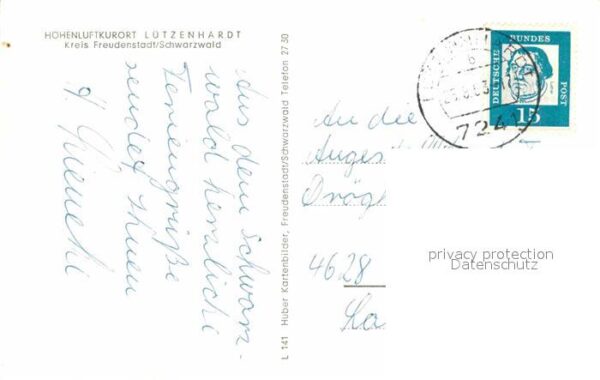 HÖHENLUFTKURORT LÜTZENHARDT
Kreis Freudenstadt/Schwarzwald
Aus dem Schwarz-
wald herzliche
Feriengrüße
sendet Ihnen
L 141 Huber Kartenbilder, Freudenstadt/Schwarzwald Telefon 27 50
DEUTSCHE BUNDESPOST
15
7241
An die
Anges
Drog
4628
La
privacy protection
Datenschutz